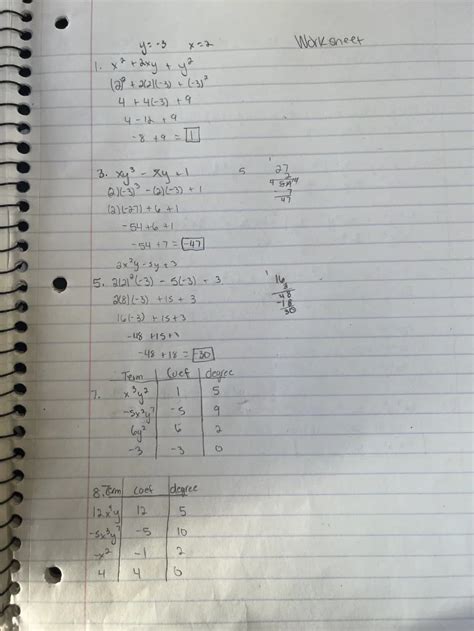 y=-3 x=2 Worksheet
1. x² + 2xy + y²
(2)² + 2(2)(-3) + (-3)²
4 + 4(-3) + 9
4 - 12 + 9
-8 + 9 = 1
3. xy³ - xy + 1
(2)(-3)³ - (2)(-3) + 1
(2)(-27) + 6 + 1
-54+6+1
-54+7 = -47
5
27
2
-7
-47
2x³y - 5y + 3
5. 2(2)³(-3) - 5(-3) + 3
2(8)(-3) + 15 + 3
16(-3) + 15 + 3
-48 +15+
-48 + 18 = -30
16
3
48
-18
30
7. Term Coef degree
x³y² 1 5
-5x²y⁷ -5 9
6y² 6 2
-3 -3 0
8. Term coef degree
12x⁴y 12 5
-5x³y⁷ -5 10
-x² -1 2
4 4 0